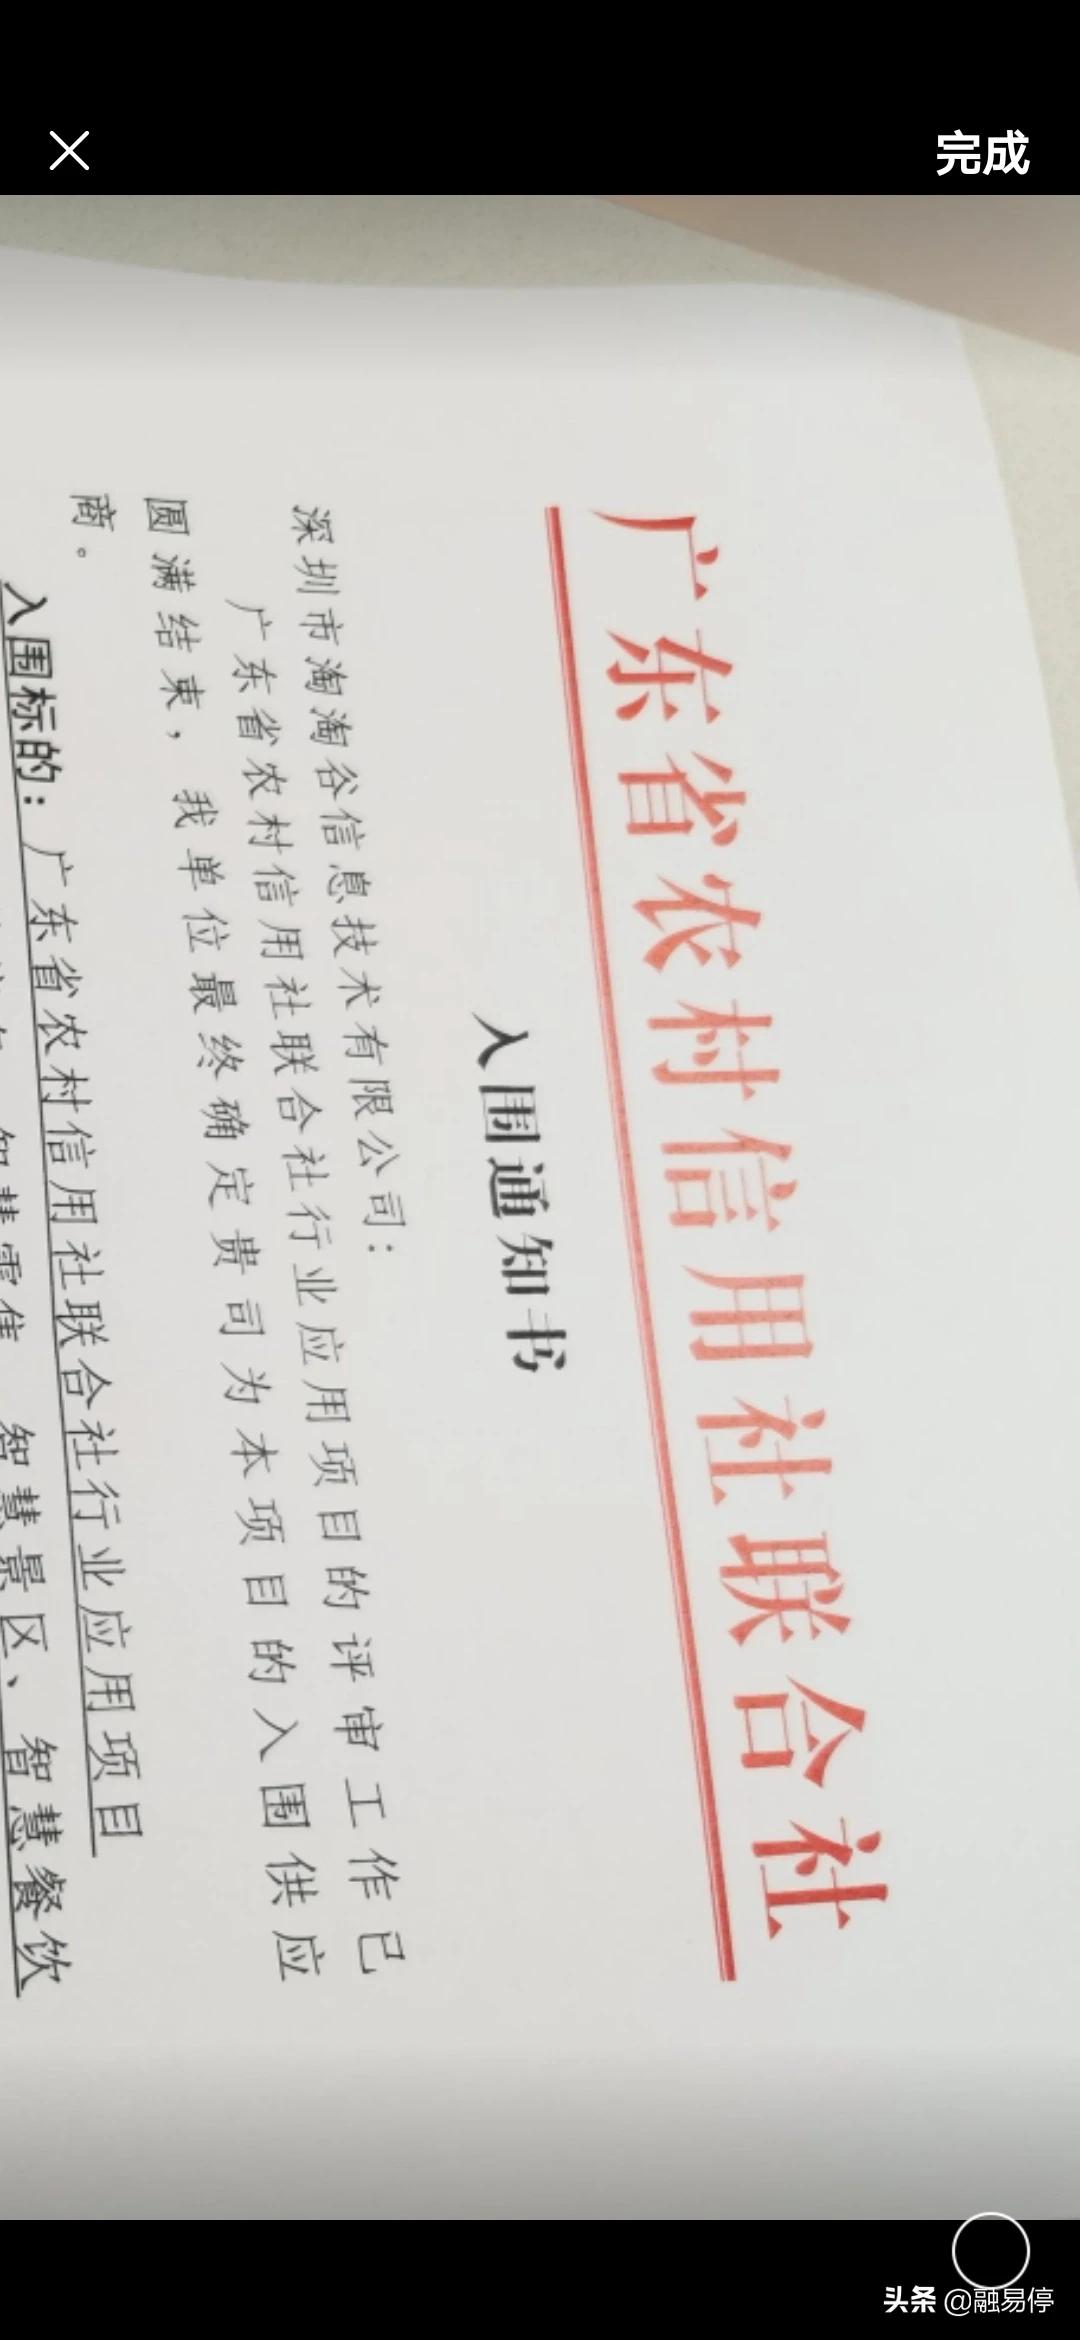 完成
广东省农村信用社联合社
入围通知书
深圳市淘淘谷信息技术有限公司：
广东省农村信用社联合社行业应用项目的评审工作已
圆满结束，我单位最终确定贵司为本项目的入围供应
商。
入围标的：广东省农村信用社联合社行业应用项目
智慧零售 智慧景区、智慧餐饮
头条 @融易停